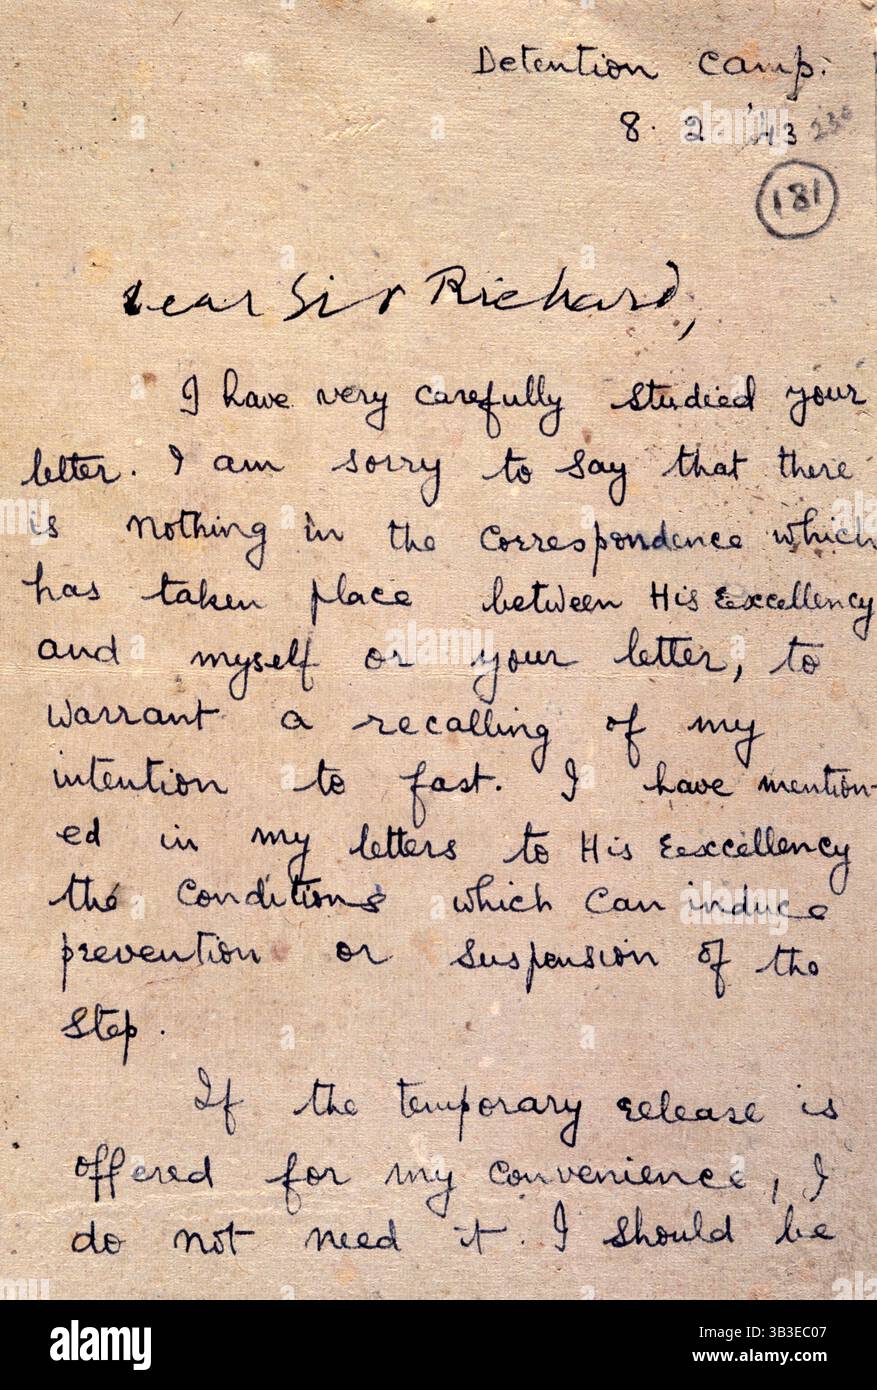 Detention Camp.
8. 2 '43 230
181
Dear Sir Richard,
I have very carefully studied your
letter. I am sorry to say that there
is nothing in the correspondence which
has taken place between His Excellency
and myself or your letter, to
warrant a recalling of my
intention to fast. I have mention-
ed in my letters to His Eexcellency
the conditions which can induce
prevention or suspension of the
step.
If the temporary release is
offered for my convenience, I
do not need it. I should be
alamy
Image ID: 3B3EC07
www.alamy.com